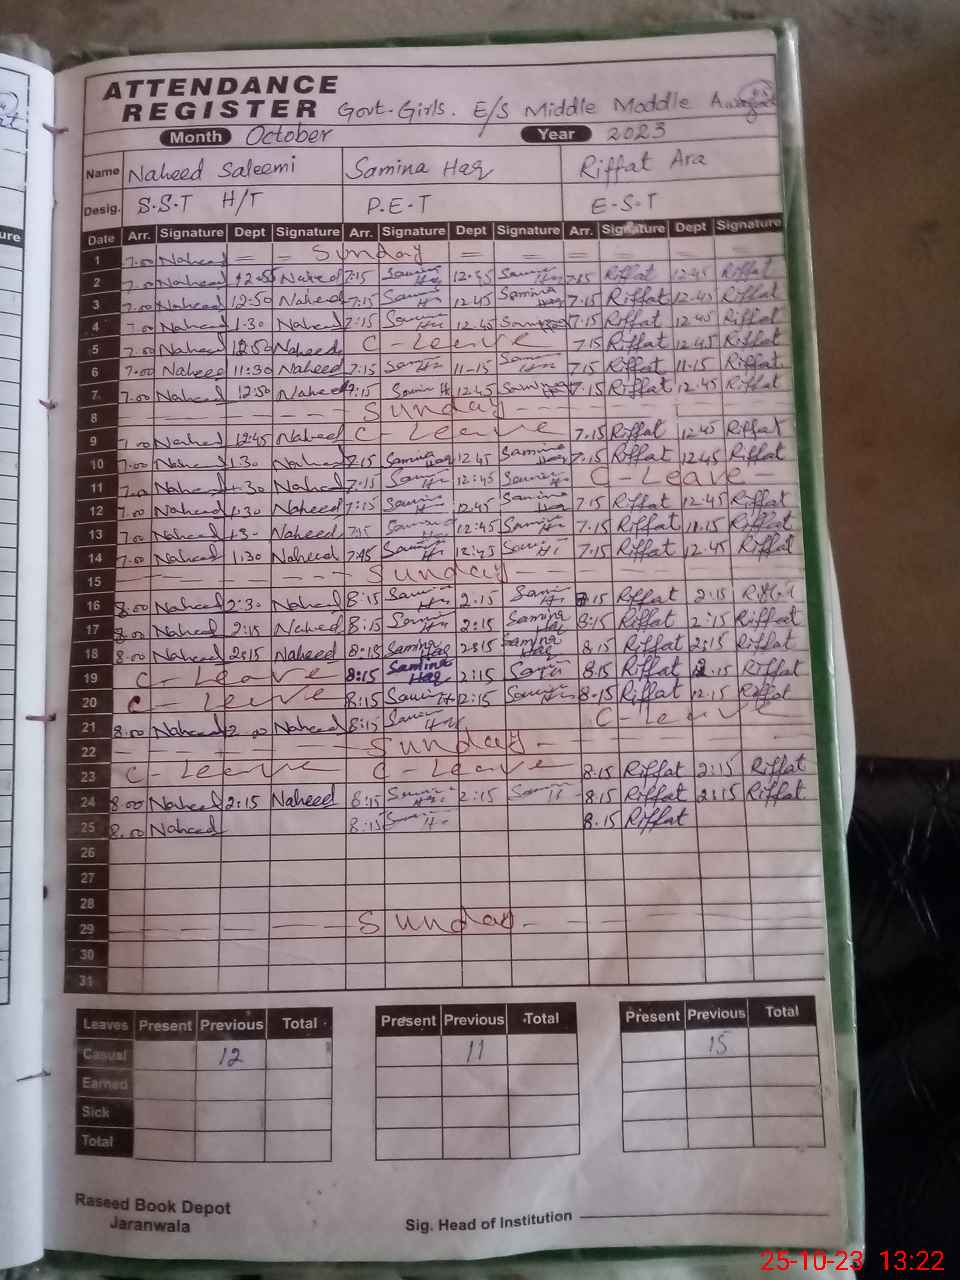 ATTENDANCE
REGISTER Govt-Girls. E/S Middle Moddle
Month October Year 2023
Name Naheed Saleemi Samina Haq Riffat Ara
Desig. S.S.T H/T P.E.T E-S-T
Date Arr. Signature Dept Signature Arr. Signature Dept Signature Arr. Signature Dept Signature
1 7.00 Naheed = = Sunday = = = = =
2 7.00 Naheed 12.50 Naheed 7:15 Samina Haq 12.45 Samina Haq 7.15 Riffat 12.45 Riffat
3 7.00 Naheed 12.50 Naheed 7:15 Samina Haq 12.45 Samina Haq 7.15 Riffat 12.45 Riffat
4 7.00 Naheed 1.30 Naheed 7:15 Samina Haq 12.45 Samina Haq 7.15 Riffat 12.45 Riffat
5 7.00 Naheed 12.50 Naheed C - Leave 7.15 Riffat 12.45 Riffat
6 7.00 Naheed 11:30 Naheed 7:15 Samina Haq 11-15 Samina Haq 7.15 Riffat 11.15 Riffat
7 7.00 Naheed 12:50 Naheed 7:15 Samina Haq 12.45 Samina Haq 7.15 Riffat 12.45 Riffat
8 Sunday
9 7.00 Naheed 12:45 Naheed C - Leave 7.15 Riffat 12.45 Riffat
10 7.00 Naheed 1.30 Naheed 7.15 Samina Haq 12.45 Samina Haq 7.15 Riffat 12.45 Riffat
11 7.00 Naheed 1.30 Naheed 7:15 Samina Haq 12:45 Samina Haq C - Leave -
12 7.00 Naheed 1.30 Naheed 7:15 Samina Haq 12.45 Samina Haq 7.15 Riffat 12.45 Riffat
13 7.00 Naheed 1.30 Naheed Samina Haq 12:45 Samina Haq 7.15 Riffat 11.15 Riffat
14 7.00 Naheed 1.30 Naheed 7:45 Samina Haq 12:45 Samina Haq 7:15 Riffat 12.45 Riffat
15 Sunday
16 8.00 Naheed 2:30 Naheed 8:15 Samina Haq 2.15 Samina Haq 8.15 Riffat 2.15 Riffat
17 8.00 Naheed 2:15 Naheed 8:15 Samina Haq 2:15 Samina Haq 8:15 Riffat 2:15 Riffat
18 8.00 Naheed 2:15 Naheed 8:15 Samina Haq 2:15 Samina Haq 8.15 Riffat 2:15 Riffat
19 C - Leave 8:15 Samina Haq 2:15 Samina 8.15 Riffat 2.15 Riffat
20 C - Leave 8:15 Samina H 2:15 Samina H 8.15 Riffat 12.15 Riffat
21 8.00 Naheed 2.00 Naheed 8:15 Samina Haq C - Leave
22 Sunday -
23 C - Leave C - Leave 8.15 Riffat 2:15 Riffat
24 8.00 Naheed 2:15 Naheed 8:15 Samina Haq 2:15 Samina H 8.15 Riffat 2:15 Riffat
25 8.00 Naheed 8:15 Samina H 8.15 Riffat
26
27
28
29 Sunday -
30
31
Leaves Present Previous Total Present Previous Total Present Previous Total
Casual 12 11 15
Earned
Sick
Total
Raseed Book Depot
Jaranwala
Sig. Head of Institution
25-10-23 13:22